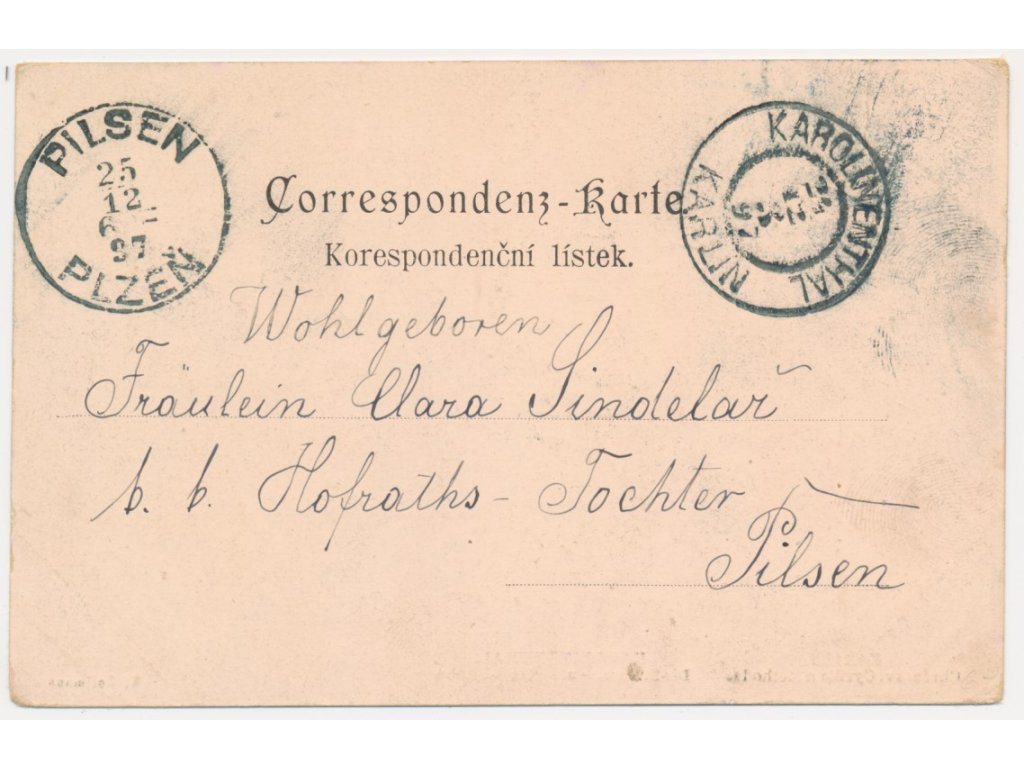 PILSEN
25
12
97
PLZEŇ
KAROLINENTHAL
KARLIN
97
Correspondenz-Karte.
Korespondenční lístek.
Wohlgeboren
Fräulein Clara Sindelař
k. k. Hofraths-Tochter
Pilsen